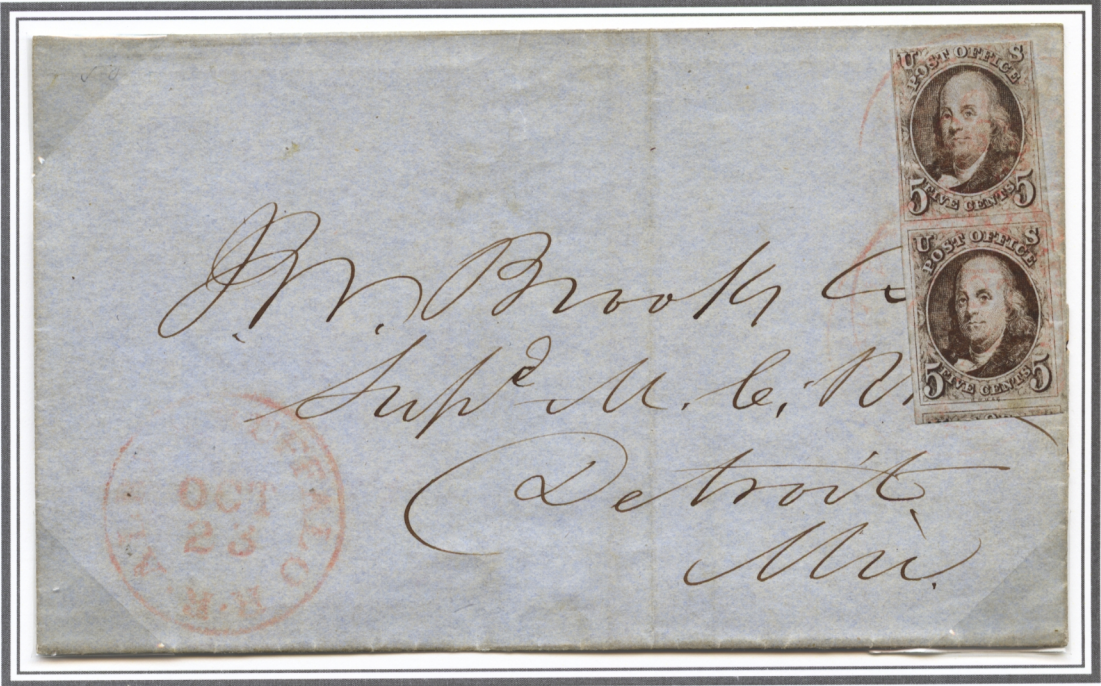 U S
POST OFFICE
5 FIVE CENTS 5
U S
POST OFFICE
5 FIVE CENTS 5
J.W. Brooks
Supt M. C. R.
Detroit
Mic.
OCT
23